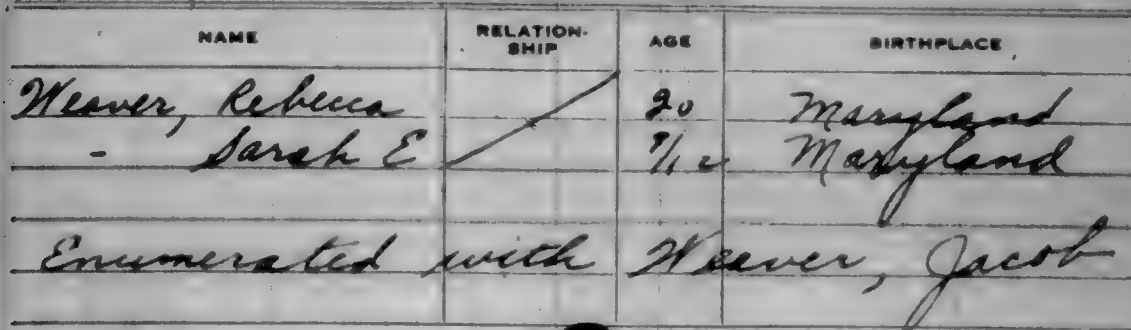 NAME RELATION-SHIP AGE BIRTHPLACE
Weaver, Rebecca 20 Maryland
- Sarah E /12 Maryland
Enumerated with Weaver, Jacob